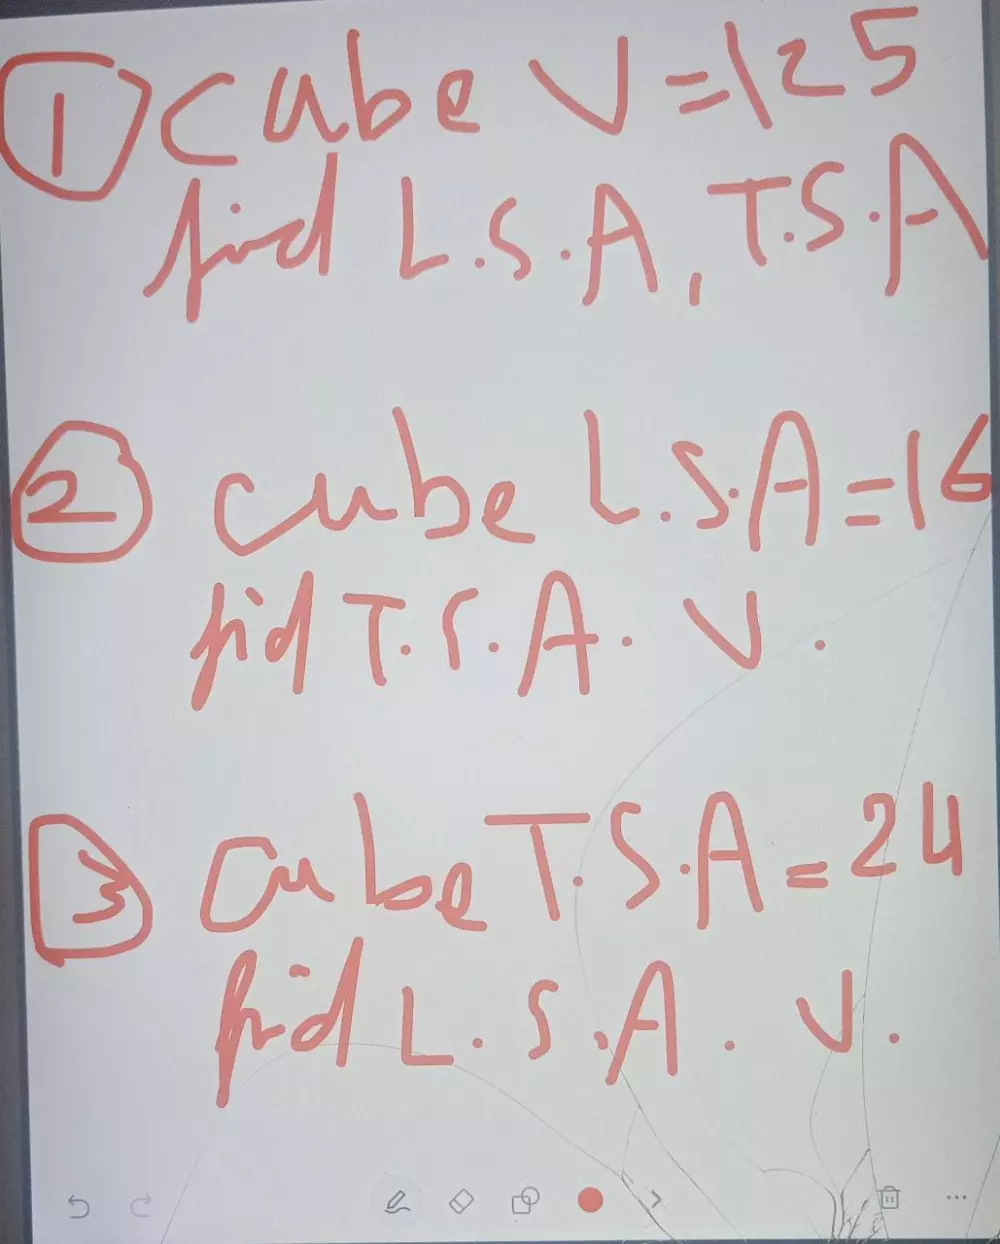 1 cube V=125
find L.S.A, T.S.A
2 cube L.S.A=16
find T.S.A. V.
3 cube T.S.A=24
find L.S.A. V.